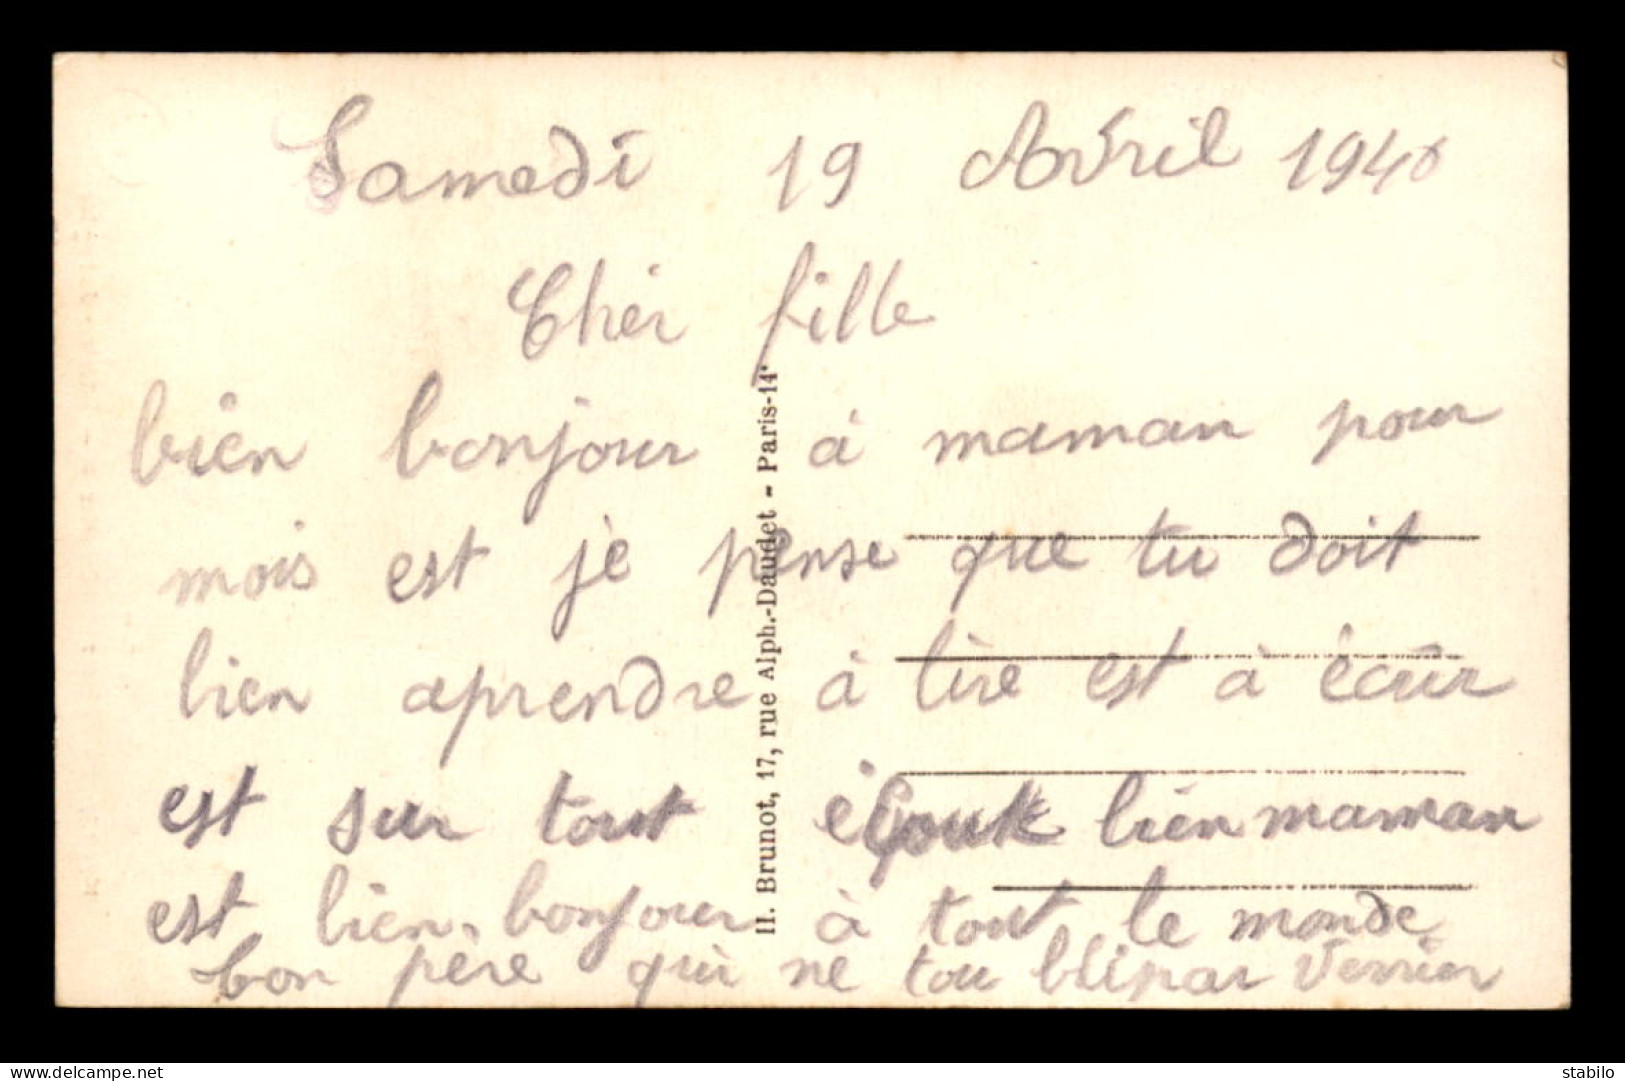 Samedi 19 Avril 1940
Cher fille
bien bonjour à maman pour
mois est je pense que tu doit
bien aprendre à lire est à écrir
est sur tout bien maman
est bien bonjour à tout le monde
ton père qui ne tou
II. Brunot, 17, rue Alph.-Daudet - Paris-14e
delcampe.net
stabilo